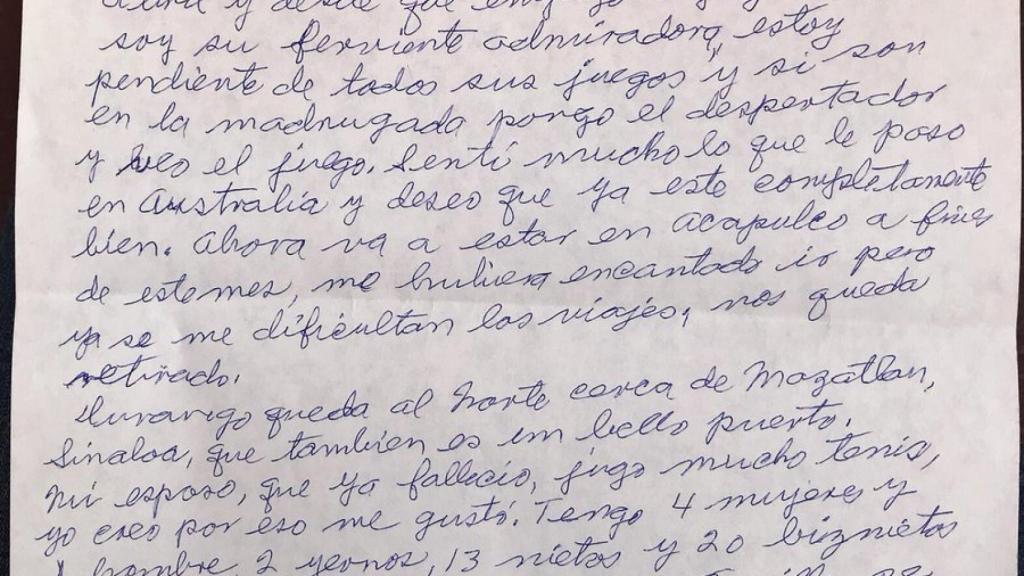 y desde que
soy su ferviente admiradora, estoy
pendiente de todos sus juegos y si son
en la madrugada pongo el despertador
y veo el juego. Sentí mucho lo que le paso
en Australia y deseo que ya este completamente
bien. Ahora va a estar en Acapulco a fines
de este mes, me hubiera encantado ir pero
ya se me dificultan los viajes, nos queda
retirado.
Durango queda al Norte cerca de Mazatlan,
Sinaloa, que tambien es un bello puerto.
Mi esposo, que ya fallecio, jugo mucho tenis,
yo creo por eso me gustó. Tengo 4 mujeres y
1 hombre, 2 yernos, 13 nietos y 20 biznietos